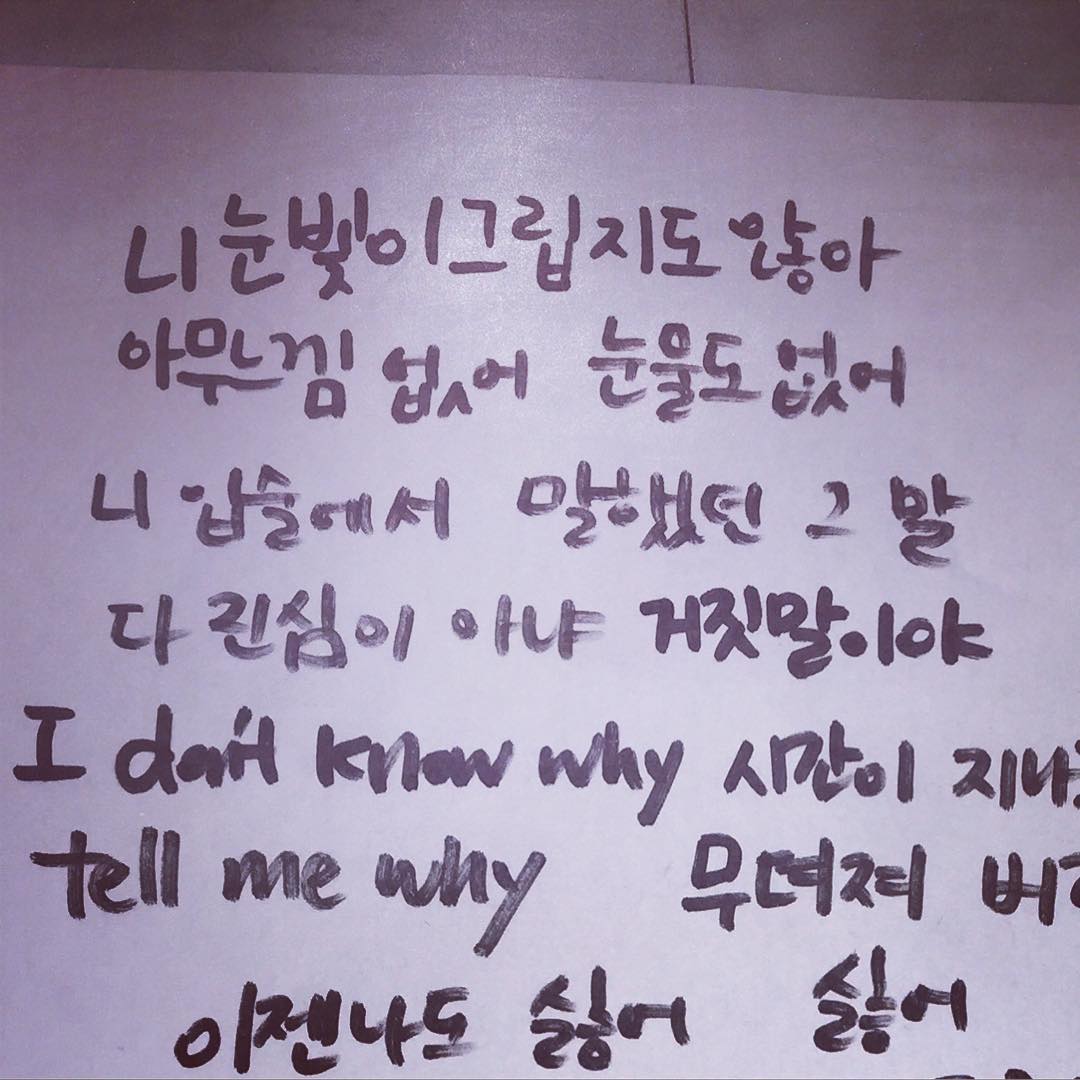 니 눈빛이 그립지도 않아
아무 느낌 없어 눈물도 없어
니 입술에서 말했던 그 말
다 진심이 아냐 거짓말이야
I don't know why 시간이 지나
tell me why 무뎌져 버
이젠 나도 싫어 싫어